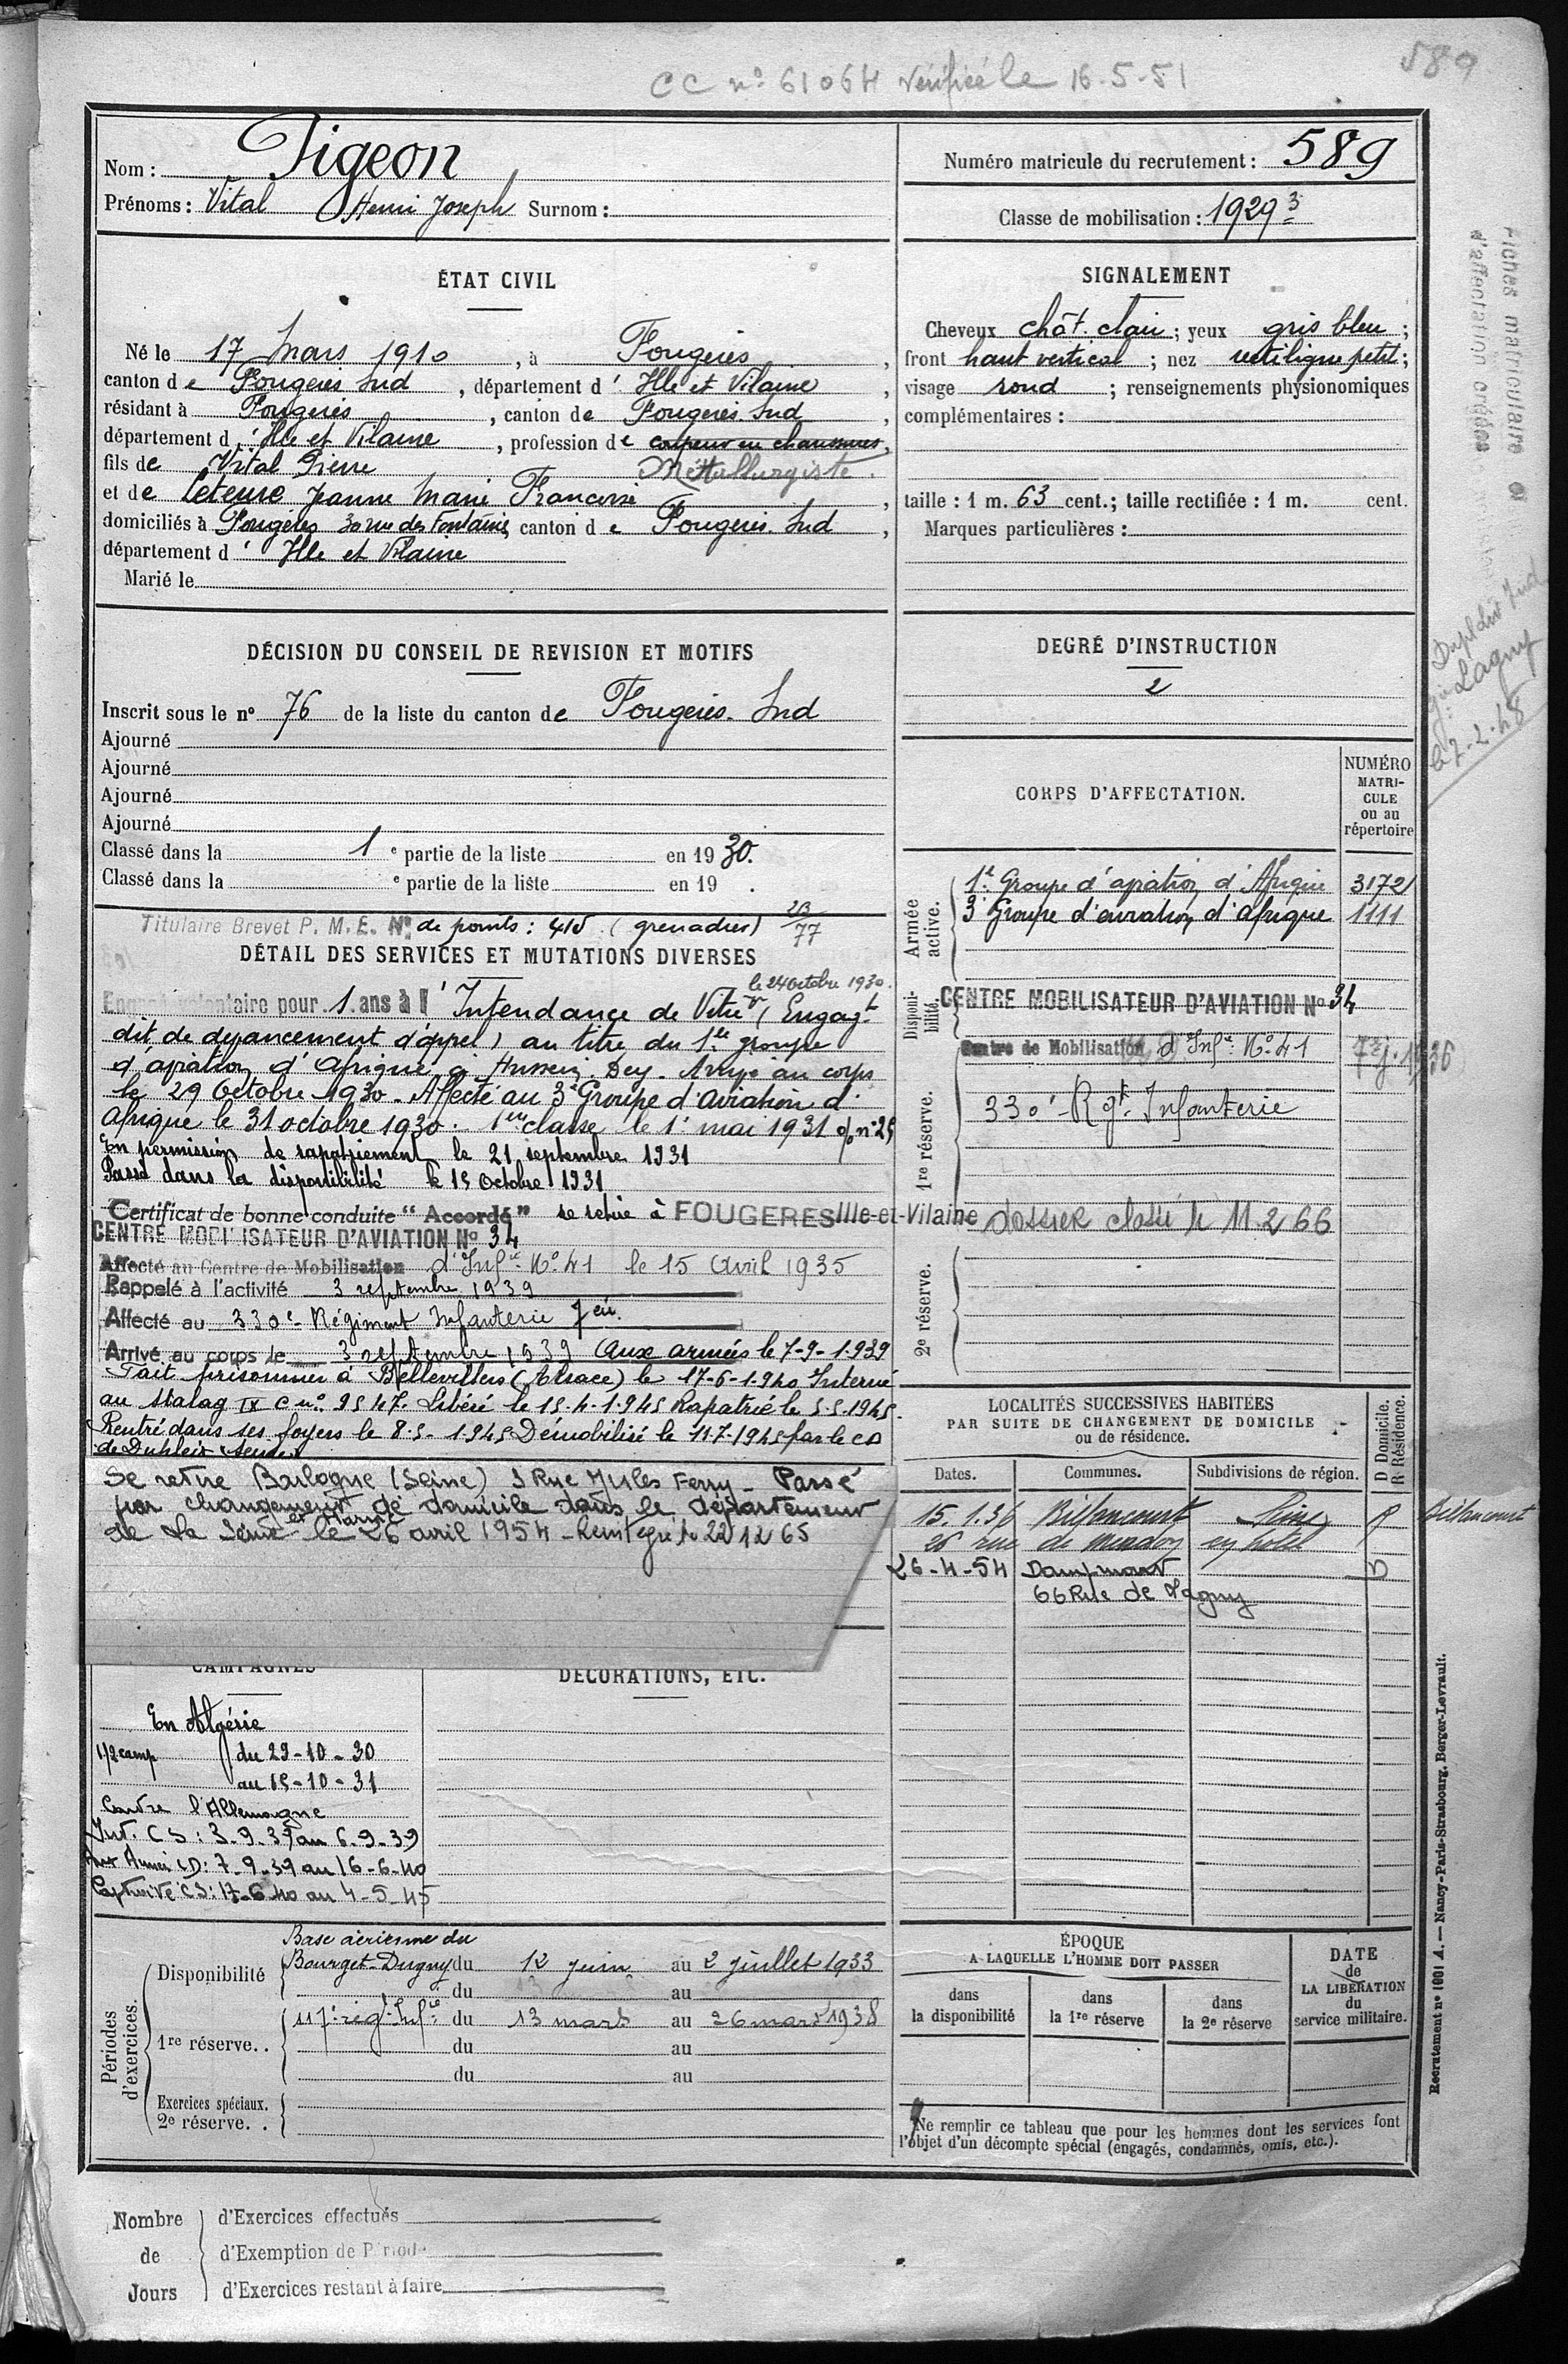 CC n° 61064 vérifiée le 16-5-51
589
Nom : Pigeon
Prénoms : Vital Henri Joseph Surnom :
Numéro matricule du recrutement : 589
Classe de mobilisation : 1929 3
ÉTAT CIVIL
Né le 17 Mars 1910, à Fougères,
canton de Fougères Sud, département d' Ille et Vilaine,
résidant à Fougères, canton de Fougères Sud,
département d' Ille et Vilaine, profession de coupeur en chaussures,
fils de Vital Pierre Métallurgiste.
et de Leteure Jeanne Marie Françoise,
domiciliés à Fougères 30 rue des Fontaines, canton de Fougères Sud,
département d' Ille et Vilaine
Marié le
SIGNALEMENT
Cheveux chât. clair ; yeux gris bleu ;
front haut vertical ; nez rectiligne petit ;
visage rond ; renseignements physionomiques
complémentaires :
taille : 1 m. 63 cent.; taille rectifiée : 1 m. cent.
Marques particulières :
Fiches matriculaire et
d'affectation créées
Lagny
le 7-2-48
DÉCISION DU CONSEIL DE REVISION ET MOTIFS
Inscrit sous le n° 76 de la liste du canton de Fougères. Sud
Ajourné
Ajourné
Ajourné
Ajourné
Classé dans la 1 e partie de la liste en 1930.
Classé dans la e partie de la liste en 19 .
DEGRÉ D'INSTRUCTION
2
CORPS D'AFFECTATION.
NUMÉRO
MATRI-
CULE
ou au
répertoire
Armée active.
1er Groupe d'aviation d'Afrique 31721
3e Groupe d'aviation d'Afrique 1111
Disponi-
bilité.
CENTRE MOBILISATEUR D'AVIATION N° 34
Centre de Mobilisation d'Infie N° 41
1re réserve.
330e Rgt Infanterie
dossier classé le 11 2 66
2e réserve.
Titulaire Brevet P. M. E. N° de points : 415 (grenadier) 2B
77
DÉTAIL DES SERVICES ET MUTATIONS DIVERSES
le 24 octobre 1930.
Engagé volontaire pour 1 ans à l'Intendance de Vitré (Engagt
dit de devancement d'appel) au titre du 1er groupe
d'aviation d'Afrique à Hussein Dey. Arrivé au corps
le 29 octobre 1930. Affecté au 3e Groupe d'aviation d'
Afrique le 31 octobre 1930. 1ere classe le 1er mai 1931
En permission de rapatriement le 21 septembre 1931
Passé dans la disponibilité le 15 octobre 1931
Certificat de bonne conduite "Accordé" se retire à FOUGERES Ille-et-Vilaine
CENTRE MOBILISATEUR D'AVIATION N° 34
Affecté au Centre de Mobilisation d'Infie N° 41 le 15 Avril 1935
Rappelé à l'activité 3 septembre 1939
Affecté au 330e Régiment Infanterie
Arrivé au corps le 3 septembre 1939 Aux armées le 7-9-1939
Fait prisonnier à Bellevillers (Alsace) le 17-6-1940 Interné
au stalag IX C n° 9547. Libéré le 15-4-1945 Rapatrié le 5-5-1945.
Rentré dans ses foyers le 8-5-1945 Démobilisé le 11-7-1945 par le CD
Se retire Boulogne (Seine) 3 Rue Jules Ferry - Passé
par changement de domicile dans le département
de la Seine et Marne le 26 avril 1954 - Réintégré le 22 12 65
LOCALITÉS SUCCESSIVES HABITÉES
PAR SUITE DE CHANGEMENT DE DOMICILE
ou de résidence.
D Domicile.
R Résidence.
Dates. Communes. Subdivisions de région.
15.1.36 Billancourt Seine R Billancourt
26 rue de Meudon en hotel
26-4-54 Dampmart D
66 Rue de Lagny
CAMPAGNES
DÉCORATIONS, ETC.
En Algérie
1/2 camp du 29-10-30
au 15-10-31
Contre l'Allemagne
Int. CS : 3-9-39 au 6-9-39
Aux Armées CD : 7-9-39 au 16-6-40
Captivité CS : 17-6-40 au 4-5-45
Périodes
d'exercices.
Disponibilité
Base aérienne du
Bourget-Dugny du 12 juin au 2 juillet 1933
du au
1re réserve..
117e rég. Infie du 13 mars au 26 mars 1938
du au
du au
Exercices spéciaux.
2e réserve. .
ÉPOQUE
A LAQUELLE L'HOMME DOIT PASSER
dans
la disponibilité
dans
la 1re réserve
dans
la 2e réserve
DATE
de
LA LIBÉRATION
du
service militaire.
Ne remplir ce tableau que pour les hommes dont les services font
l'objet d'un décompte spécial (engagés, condamnés, omis, etc.).
Recrutement n° 1001 A. — Nancy-Paris-Strasbourg, Berger-Levrault.
Nombre
de
Jours
d'Exercices effectués
d'Exemption de Période
d'Exercices restant à faire